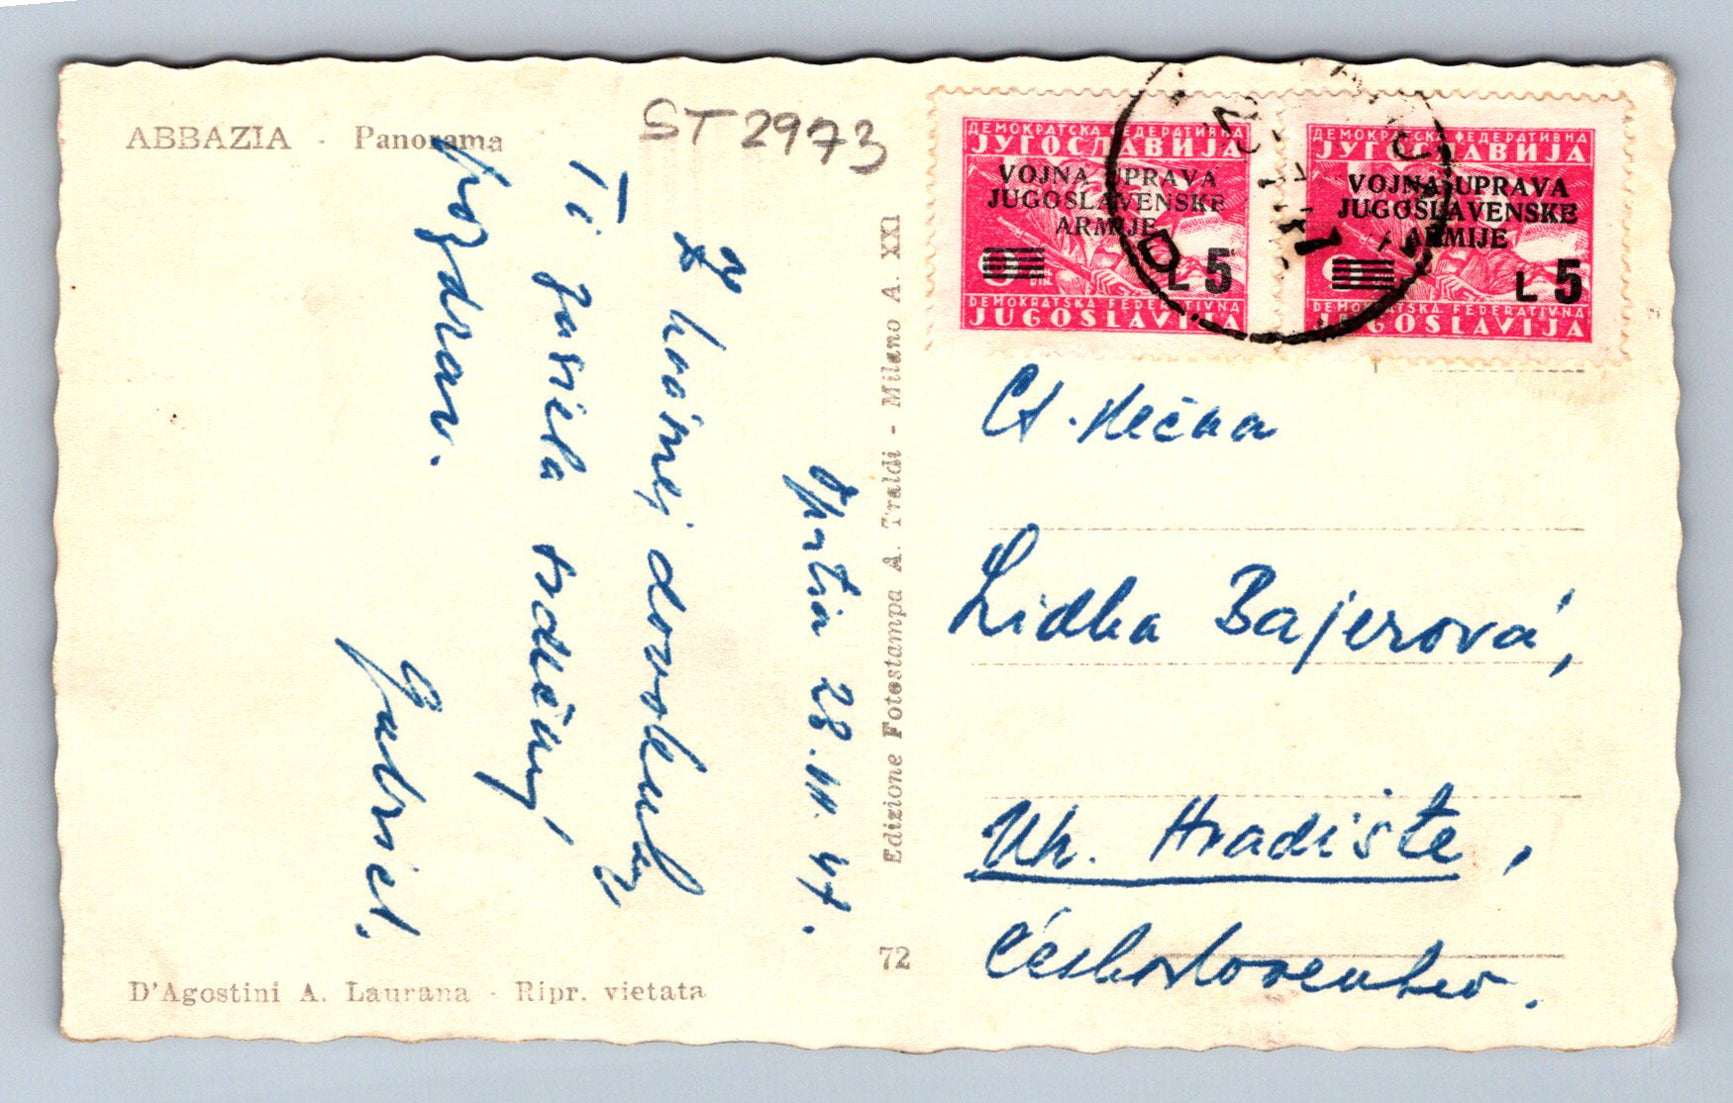 ABBAZIA - Panorama
ST 2973
Opatia 28.III.47.
Z krásnej dovolenky
Ti zasiela srdečný
pozdrav.
Gabriel.
Edizione Fotostampa A. Traldi - Milano A. XXI
72
D'Agostini A. Laurana - Ripr. vietata
ДЕМОКРАТСКА ФЕДЕРАТИВНА
ЈУГОСЛАВИЈА
VOJNA UPRAVA
JUGOSLAVENSKE
ARMIJE
L 5
DEMOKRATSKA FEDERATIVNA
JUGOSLAVIJA
ДЕМОКРАТСКА ФЕДЕРАТИВНА
ЈУГОСЛАВИЈА
VOJNA UPRAVA
JUGOSLAVENSKE
ARMIJE
L 5
DEMOKRATSKA FEDERATIVNA
JUGOSLAVIJA
Ct. slečna
Lidka Bajerová,
Uh. Hradište,
Československo.